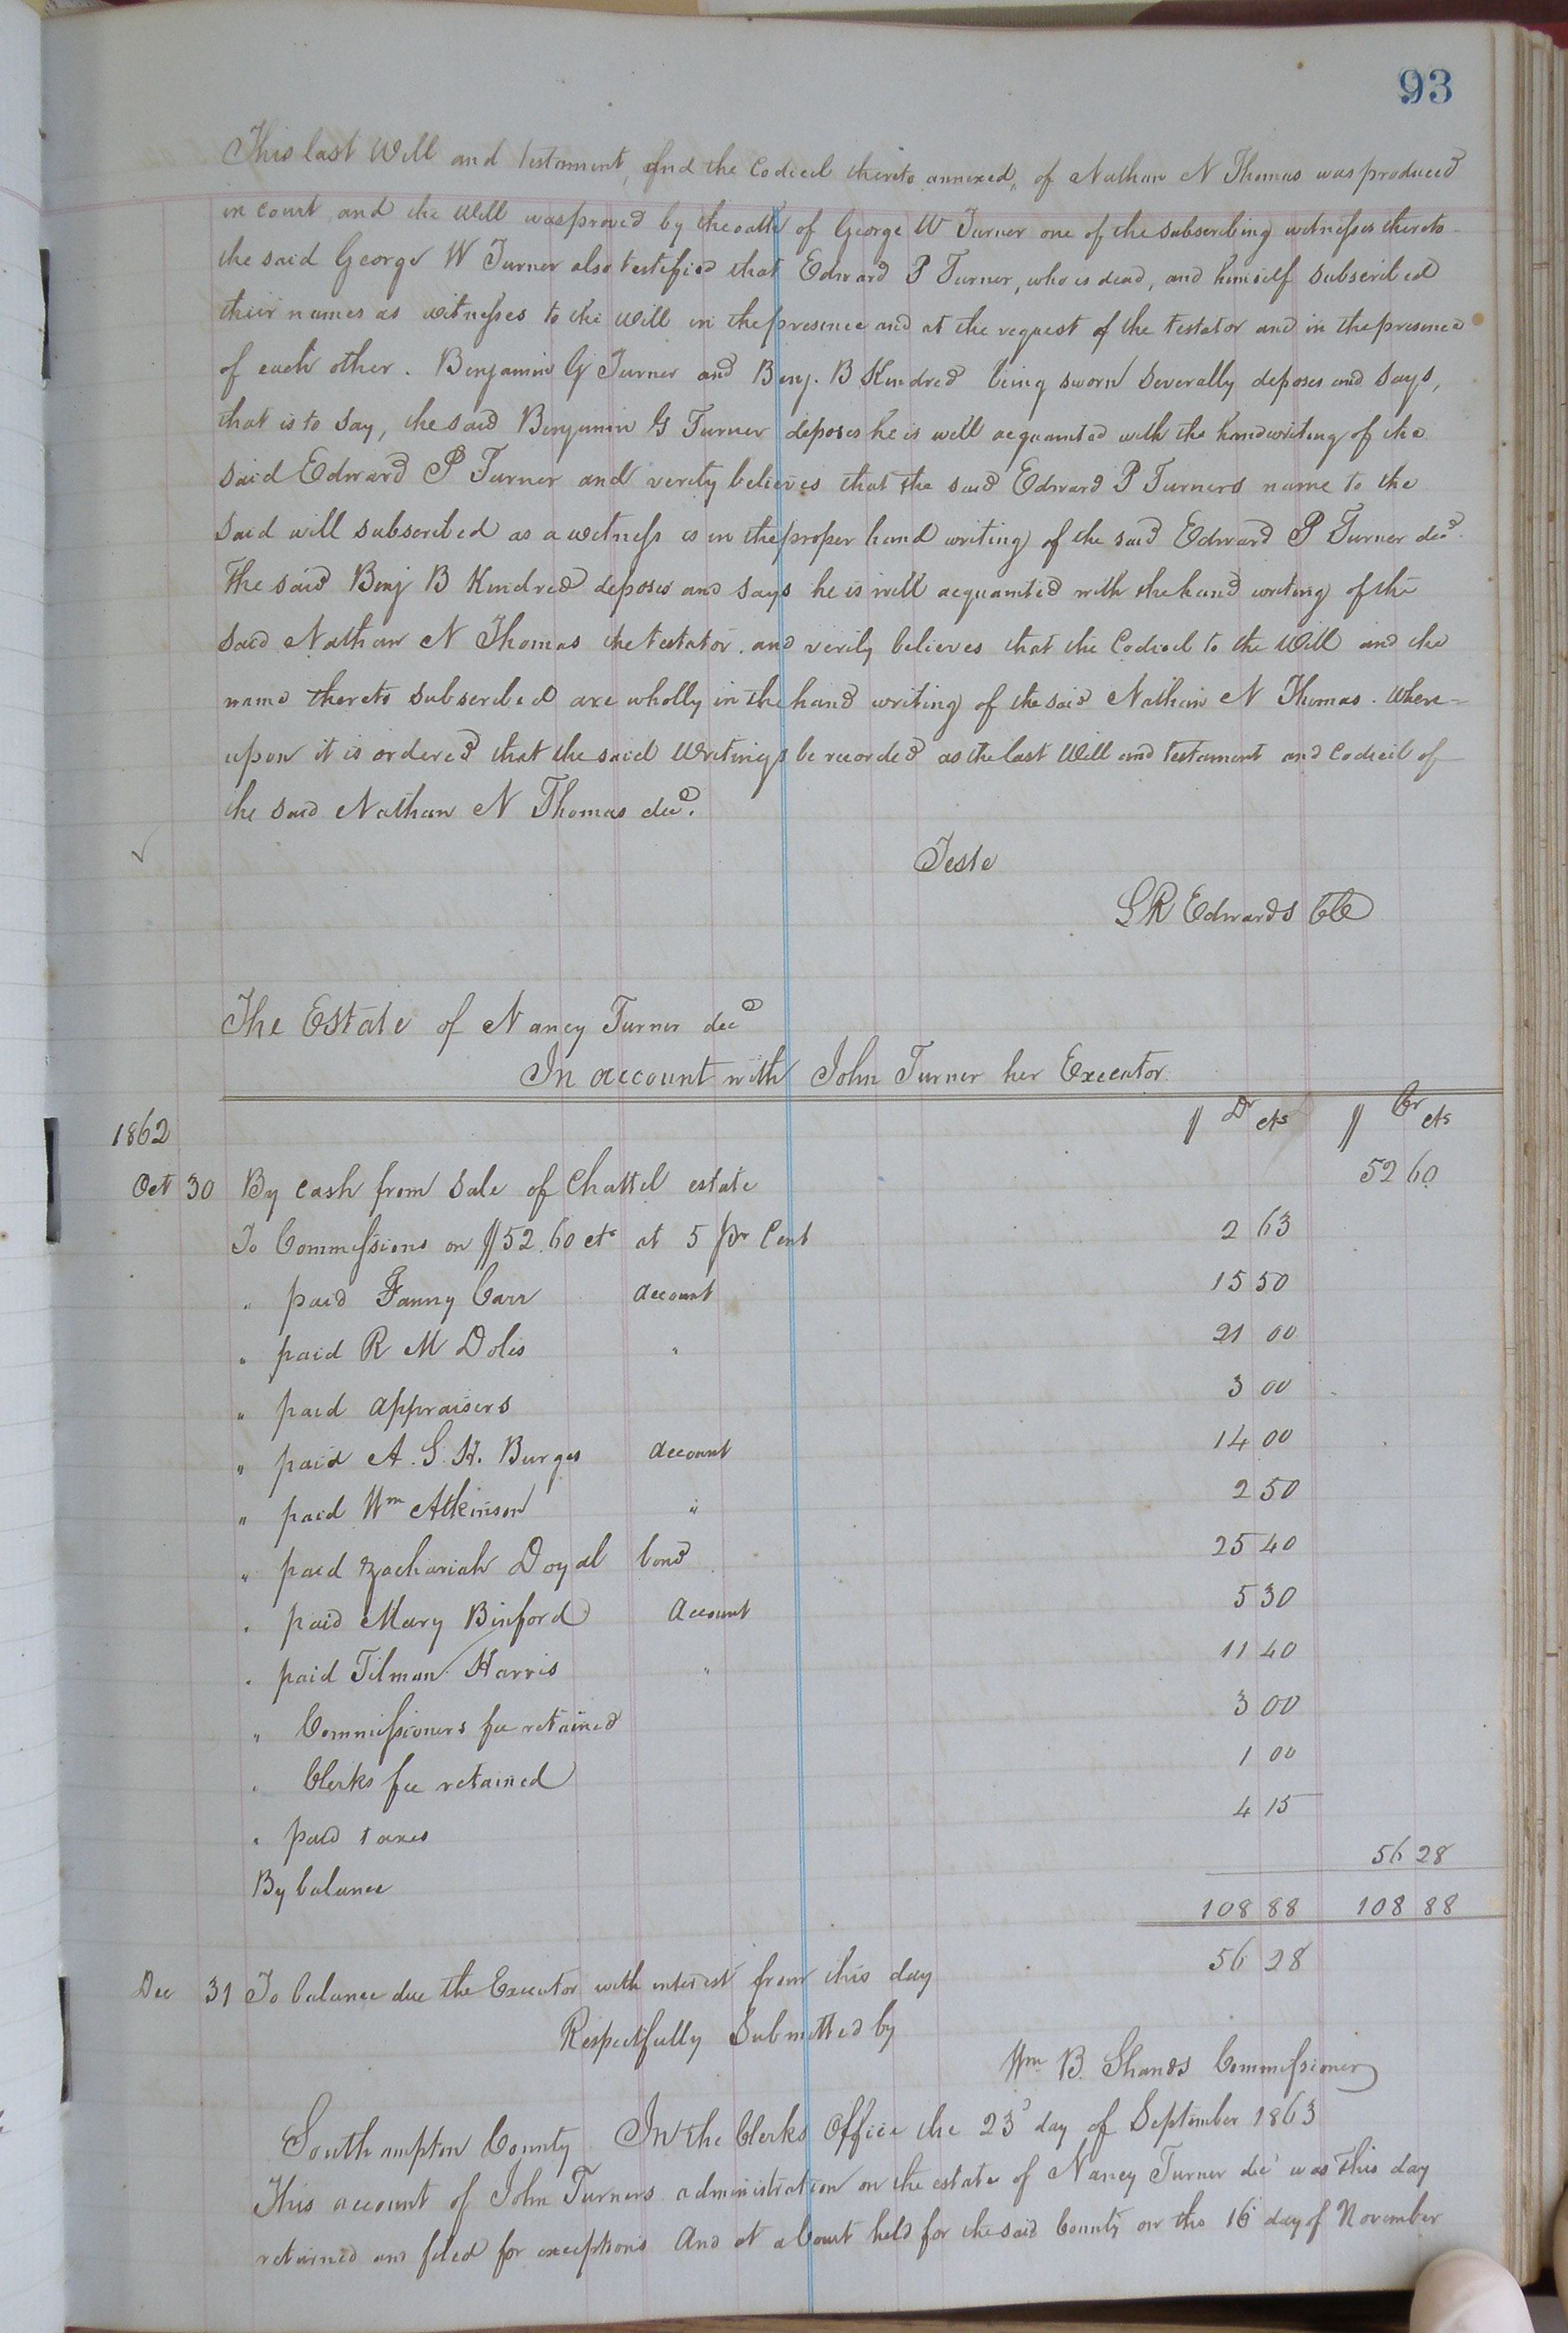 93
This last Will and testament, and the Codicil thereto annexed, of Nathan N Thomas was produced
in Court and the Will was proved by the oath of George W Turner one of the subscribing witnesses thereto
the said George W Turner also testified that Edward P Turner, who is dead, and himself subscribed
their names as witnesses to the Will in the presence and at the request of the testator and in the presence
of each other. Benjamin G Turner and Benj. B Kindred being sworn severally deposes and says,
that is to say, the said Benjamin G Turner deposes he is well acquainted with the handwriting of the
said Edward P Turner and verily believes that the said Edward P Turners name to the
said will subscribed as a witness is in the proper hand writing of the said Edward P Turner decd.
The said Benj B Kindred deposes and says he is well acquainted with the hand writing of the
said Nathan N Thomas the testator. and verily believes that the Codicil to the Will and the
name thereto subscribed are wholly in the hand writing of the said Nathan N Thomas. Where=
upon it is ordered that the said Writings be recorded as the last Will and testament and Codicil of
the said Nathan N Thomas decd.
Teste
L R Edwards CC
The Estate of Nancy Turner decd
In account with John Turner her Executor.
1862 $ Dr cts $ Cr cts
Oct 30 By cash from sale of Chattel estate 52 60
To Commissions on $52.60 cts at 5 pr Cent 2 63
" paid Fanny Carr account 15 50
" paid R M Doles " 21 00
" paid appraisers 3 00
" paid A. S. H. Burges account 14 00
" paid Wm Atkinson " 2 50
" paid Zachariah Doyal bond 25 40
" paid Mary Binford Account 5 30
" paid Tilman Harris " 11 40
" Commissioners fee retained 3 00
" Clerks fee retained 1 00
" paid taxes 4 15
By balance 56 28
108 88 108 88
Dec 31 To balance due the Executor with interest from this day 56 28
Respectfully Submitted by
Wm B. Shands Commissioner
Southampton County In the Clerks Office the 23d day of September 1863
This account of John Turners administration on the estate of Nancy Turner decd was this day
returned and filed for exceptions And at a Court held for the said County on the 16 day of November